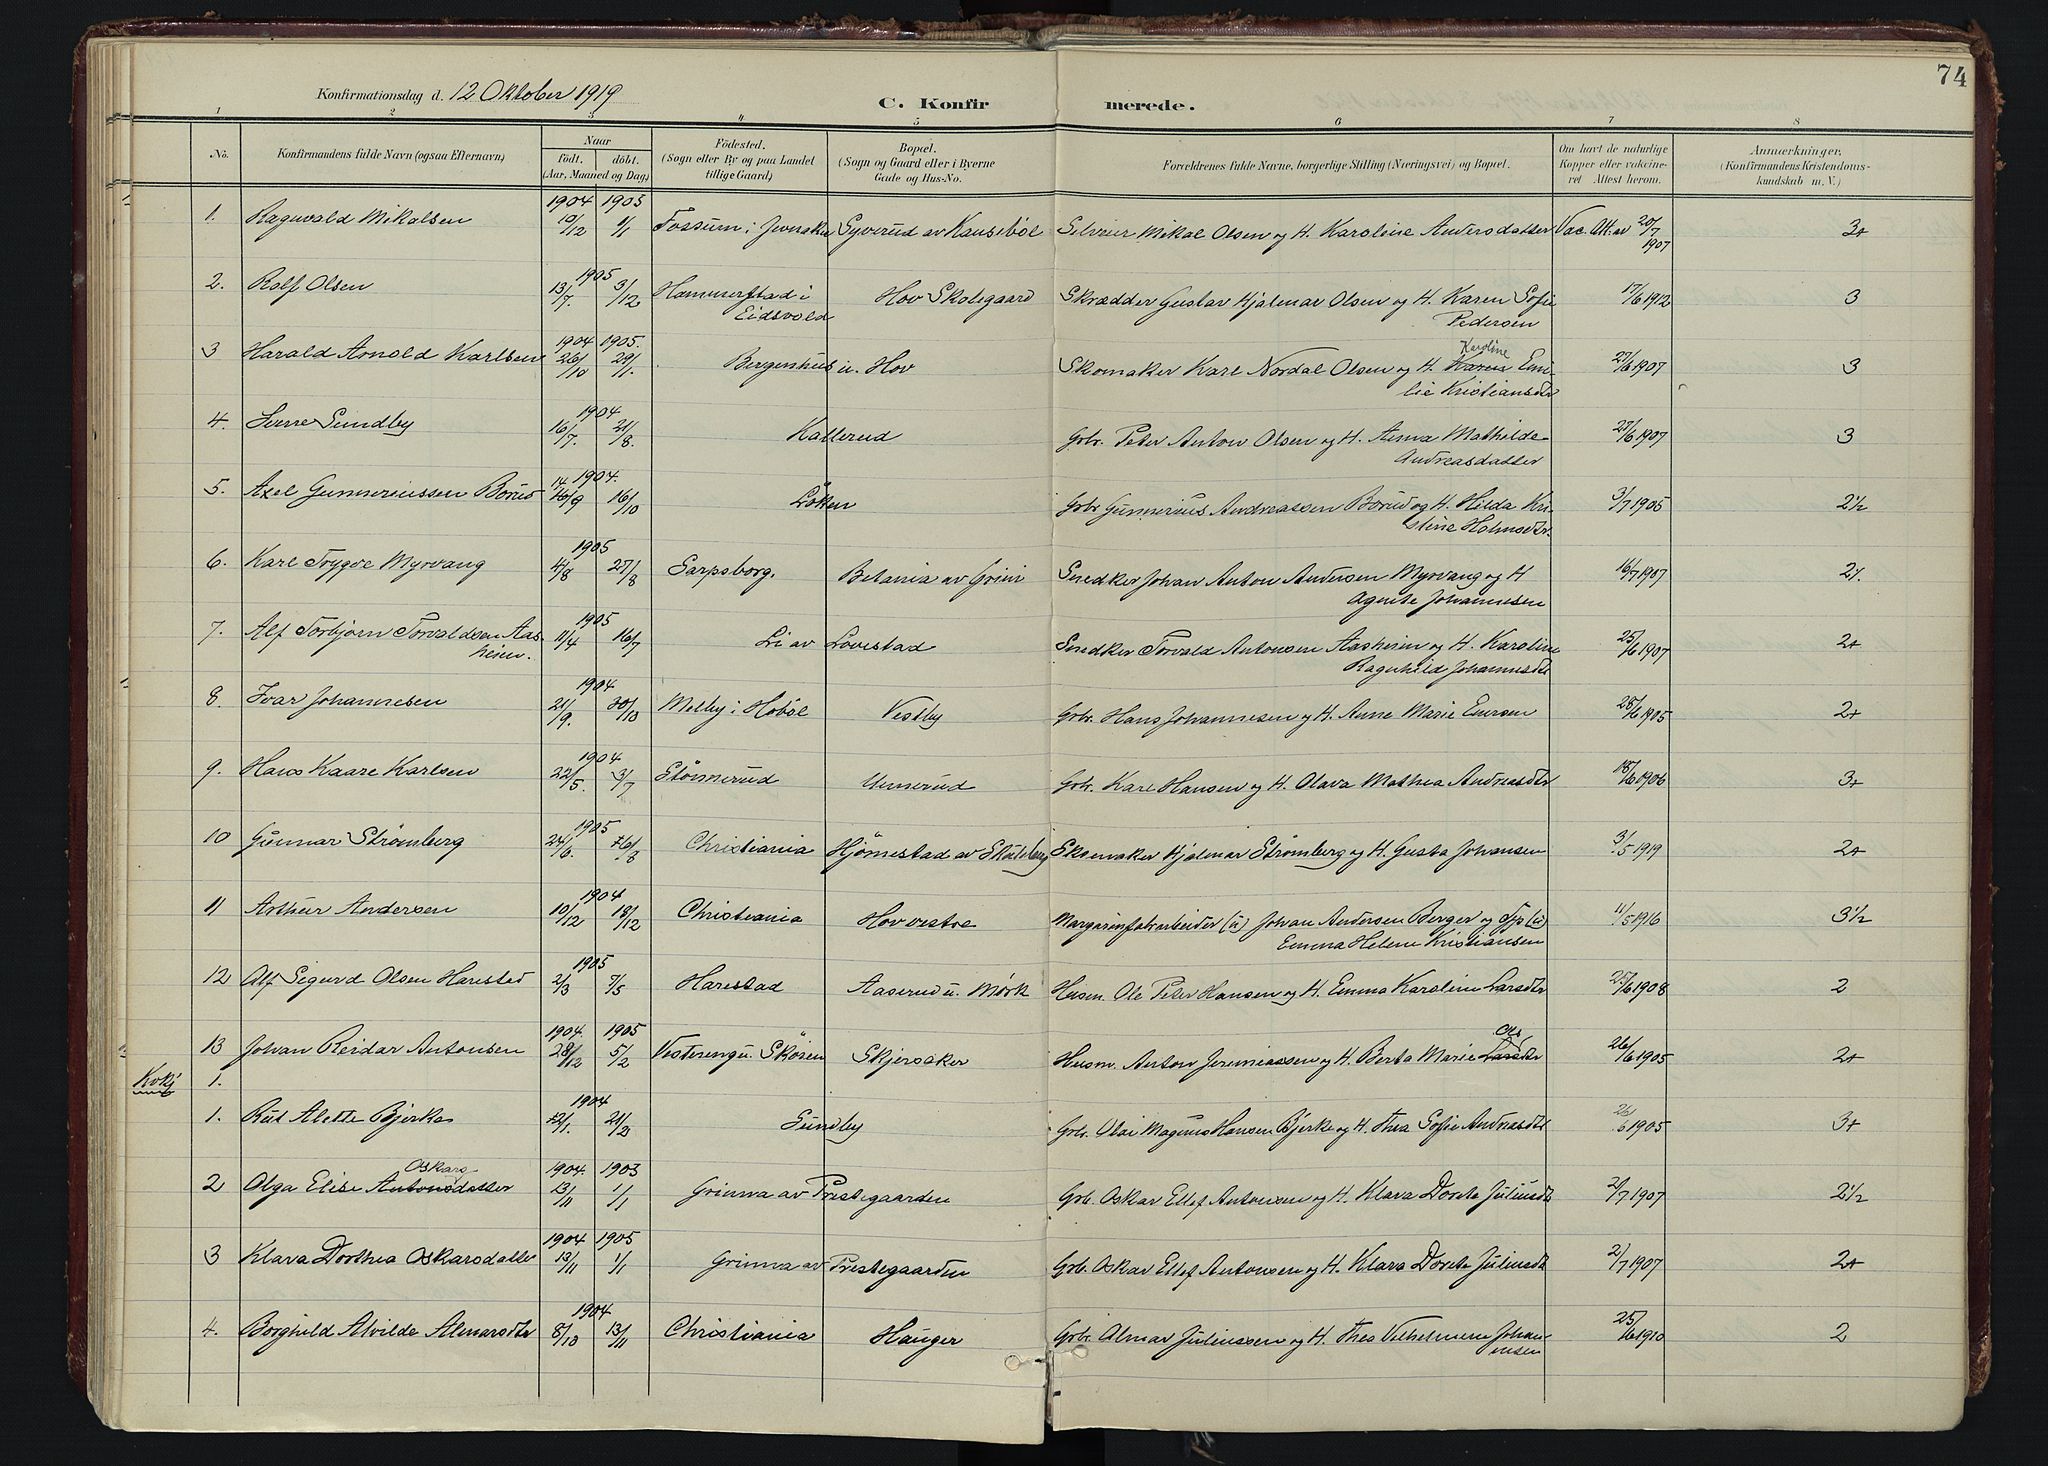 74
Konfirmationsdag d. 12 Oktober 1919
C. Konfirmerede.
1 2 3 4 5 6 7 8
No. Konfirmandens fulde Navn (ogsaa Efternavn) Naar födt. döbt. (Aar, Maaned og Dag) Födested. (Sogn eller By og paa Landet tillige Gaard) Bopæl. (Sogn og Gaard eller i Byerne Gade og Hus-No. Forældrenes fulde Navne, borgerlige Stilling (Næringsvei) og Bopæl. Om havt de naturlige Kopper eller vakcineret Attest herom. Anmærkninger, (Konfirmandens Kristendomskundskab m. V.)
1904 1905
1. Ragnvald Mikalsen 19/12 1/1 Fossum i Jevnaker Syverud av Kausebøl Mikal Olsen og H. Karoline Andersdatter Vac. Att. av 20/7 1907 3+
1905
2. Rolf Olsen 13/7. 3/12 Hammerstad i Eidsvold Hov Skolegaard Skrædder Gustav Hjalmar Olsen og H. Karen Sofie Pedersen 17/6 1912 3
1904 1905.
3 Harald Arnold Karlsen 26/10 29/1. Bergenhus u. Hov Skomaker Karl Nordal Olsen og H. Karoline Emilie Kristiansdtr 27/6 1907 3
1904
4. Sverre Sundby 16/7. 21/8. Kallerud Gbr. Peter Anton Olsen og H. Anna Mathilde Andreasdatter 27/6 1907 3
1904.
5. Axel Gunneriussen Borud 14/9 16/10 Løken Gbr Gunnerius Andreassen Borud og H. Hilda Kristine Holmsdtr. 3/7 1905 2½
1905
6. Karl Trygve Myrvang 4/8 27/8 Sarpsborg. Betania av Grini Snedker Johan Anton Andersen Myrvang og H Agnete Johannesen 16/7 1907 2
1905
7. Alf Torbjørn Torvaldsen Aasheim. 11/4 16/7 Li av Lövestad Snedker Torvald Antonsen Aasheim og H. Karoline Ragnhild Johannesdtr 25/6 1907 2+
1904
8. Ivar Johannesen 21/9. 30/10 Melby i Hobøl Vestby Gbr. Hans Johannesen og H. Anne Marie Enersen 28/6 1905 2+
1904
9. Hans Kaare Karlsen 22/5. 3/7 Stömnerud Unnerud Gbr. Karl Hansen og H. Olava Mathea Andreasdtr 18/6 1906 3+
1905
10 Gunnar Strömberg 24/6. 6/8 Christiania Hjörnestad av Skuleberg Skomaker Hjalmar Strömberg og H. Gusta Johansen 3/5 1919 2+
1904
11 Arthur Andersen 10/12 18/12 Christiania Hov vestre Margarinfabarbeider (u) Johan Andersen Berger og Tjp (u) Emma Helene Kristiansen 11/5 1916 3½
1905
12 Alf Sigurd Olsen Harestad 2/3 7/5 Harestad Aaserud u. Mørk Husm. Ole Peter Hansen og H. Emma Karoline Larsdtr 25/6 1908 2
1904. 1905
13 Johan Reidar Antonsen 28/12 5/2 Vestereng u. Skösen Skjersaker Husm. Anton Jeremiassen og H. Berta Marie Larsdtr 26/6 1905 2+
1.
1904
1. Rut Alette Bjerke 12/1. 21/2 Sundby Gbr. Olai Magnus Hansen Bjerke og H. Thea Sofie Andreasdtr 26/6 1905 3+
1904. 1903
2 Olga Elise Oskars Antonsdatter 13/11 1/1 Grinna av Prestegaarden Gbr. Oskar Ellef Antonsen og H. Klara Dorete Juliusdtr 2/7 1907 2½
1904 1905
3 Klara Dorthea Oskarsdatter 13/11 1/1 Grinna av Prestegaarden Gbr. Oskar Ellef Antonsen og H. Klara Dorete Juliusdtr 2/7 1907 2+
1904
4. Borghild Alvilde Almarsdtr 8/10 13/11 Christiania Hauger Gbr. Almar Juliussen og H. Thea Vilhelmine Johannsen 25/6 1910 2